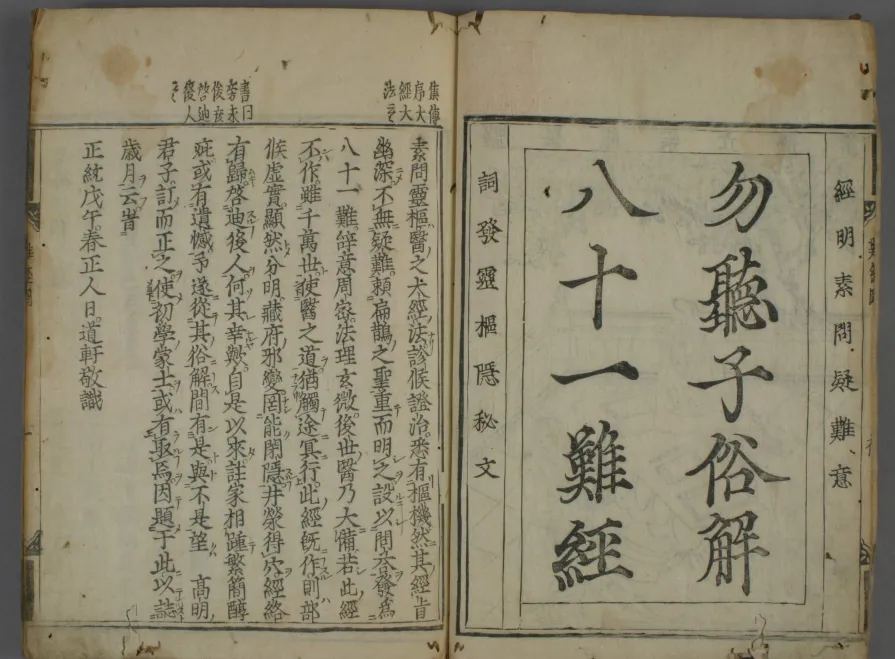 經明素問疑難意
勿聽子俗解
八十一難經
詞發靈樞隱秘文
集傳
序大
經大
法之
素問靈樞醫之大經法診候證治悉有樞機然其經旨
幽深不無疑難賴扁鵲之聖重而明之設以問荅發為
八十一難辭意周密法理玄微後世醫乃大備若此經
不作雖千萬世使醫之道猶觸途冥行此經既作則部
候虛實顯然分明藏府邪變罔能閉隱井滎得穴經絡
有歸啓迪後人何其幸歟自是以來註家相踵繁簡醇
疵或有遺憾予遂從其俗解間有是與不是望 高明
君子訂而正之使初學蒙士或有取焉因題于此以誌
歲月云旹
正統戊午春正人日道軒敬識
書曰
旁求
俊彥
啓迪
後人